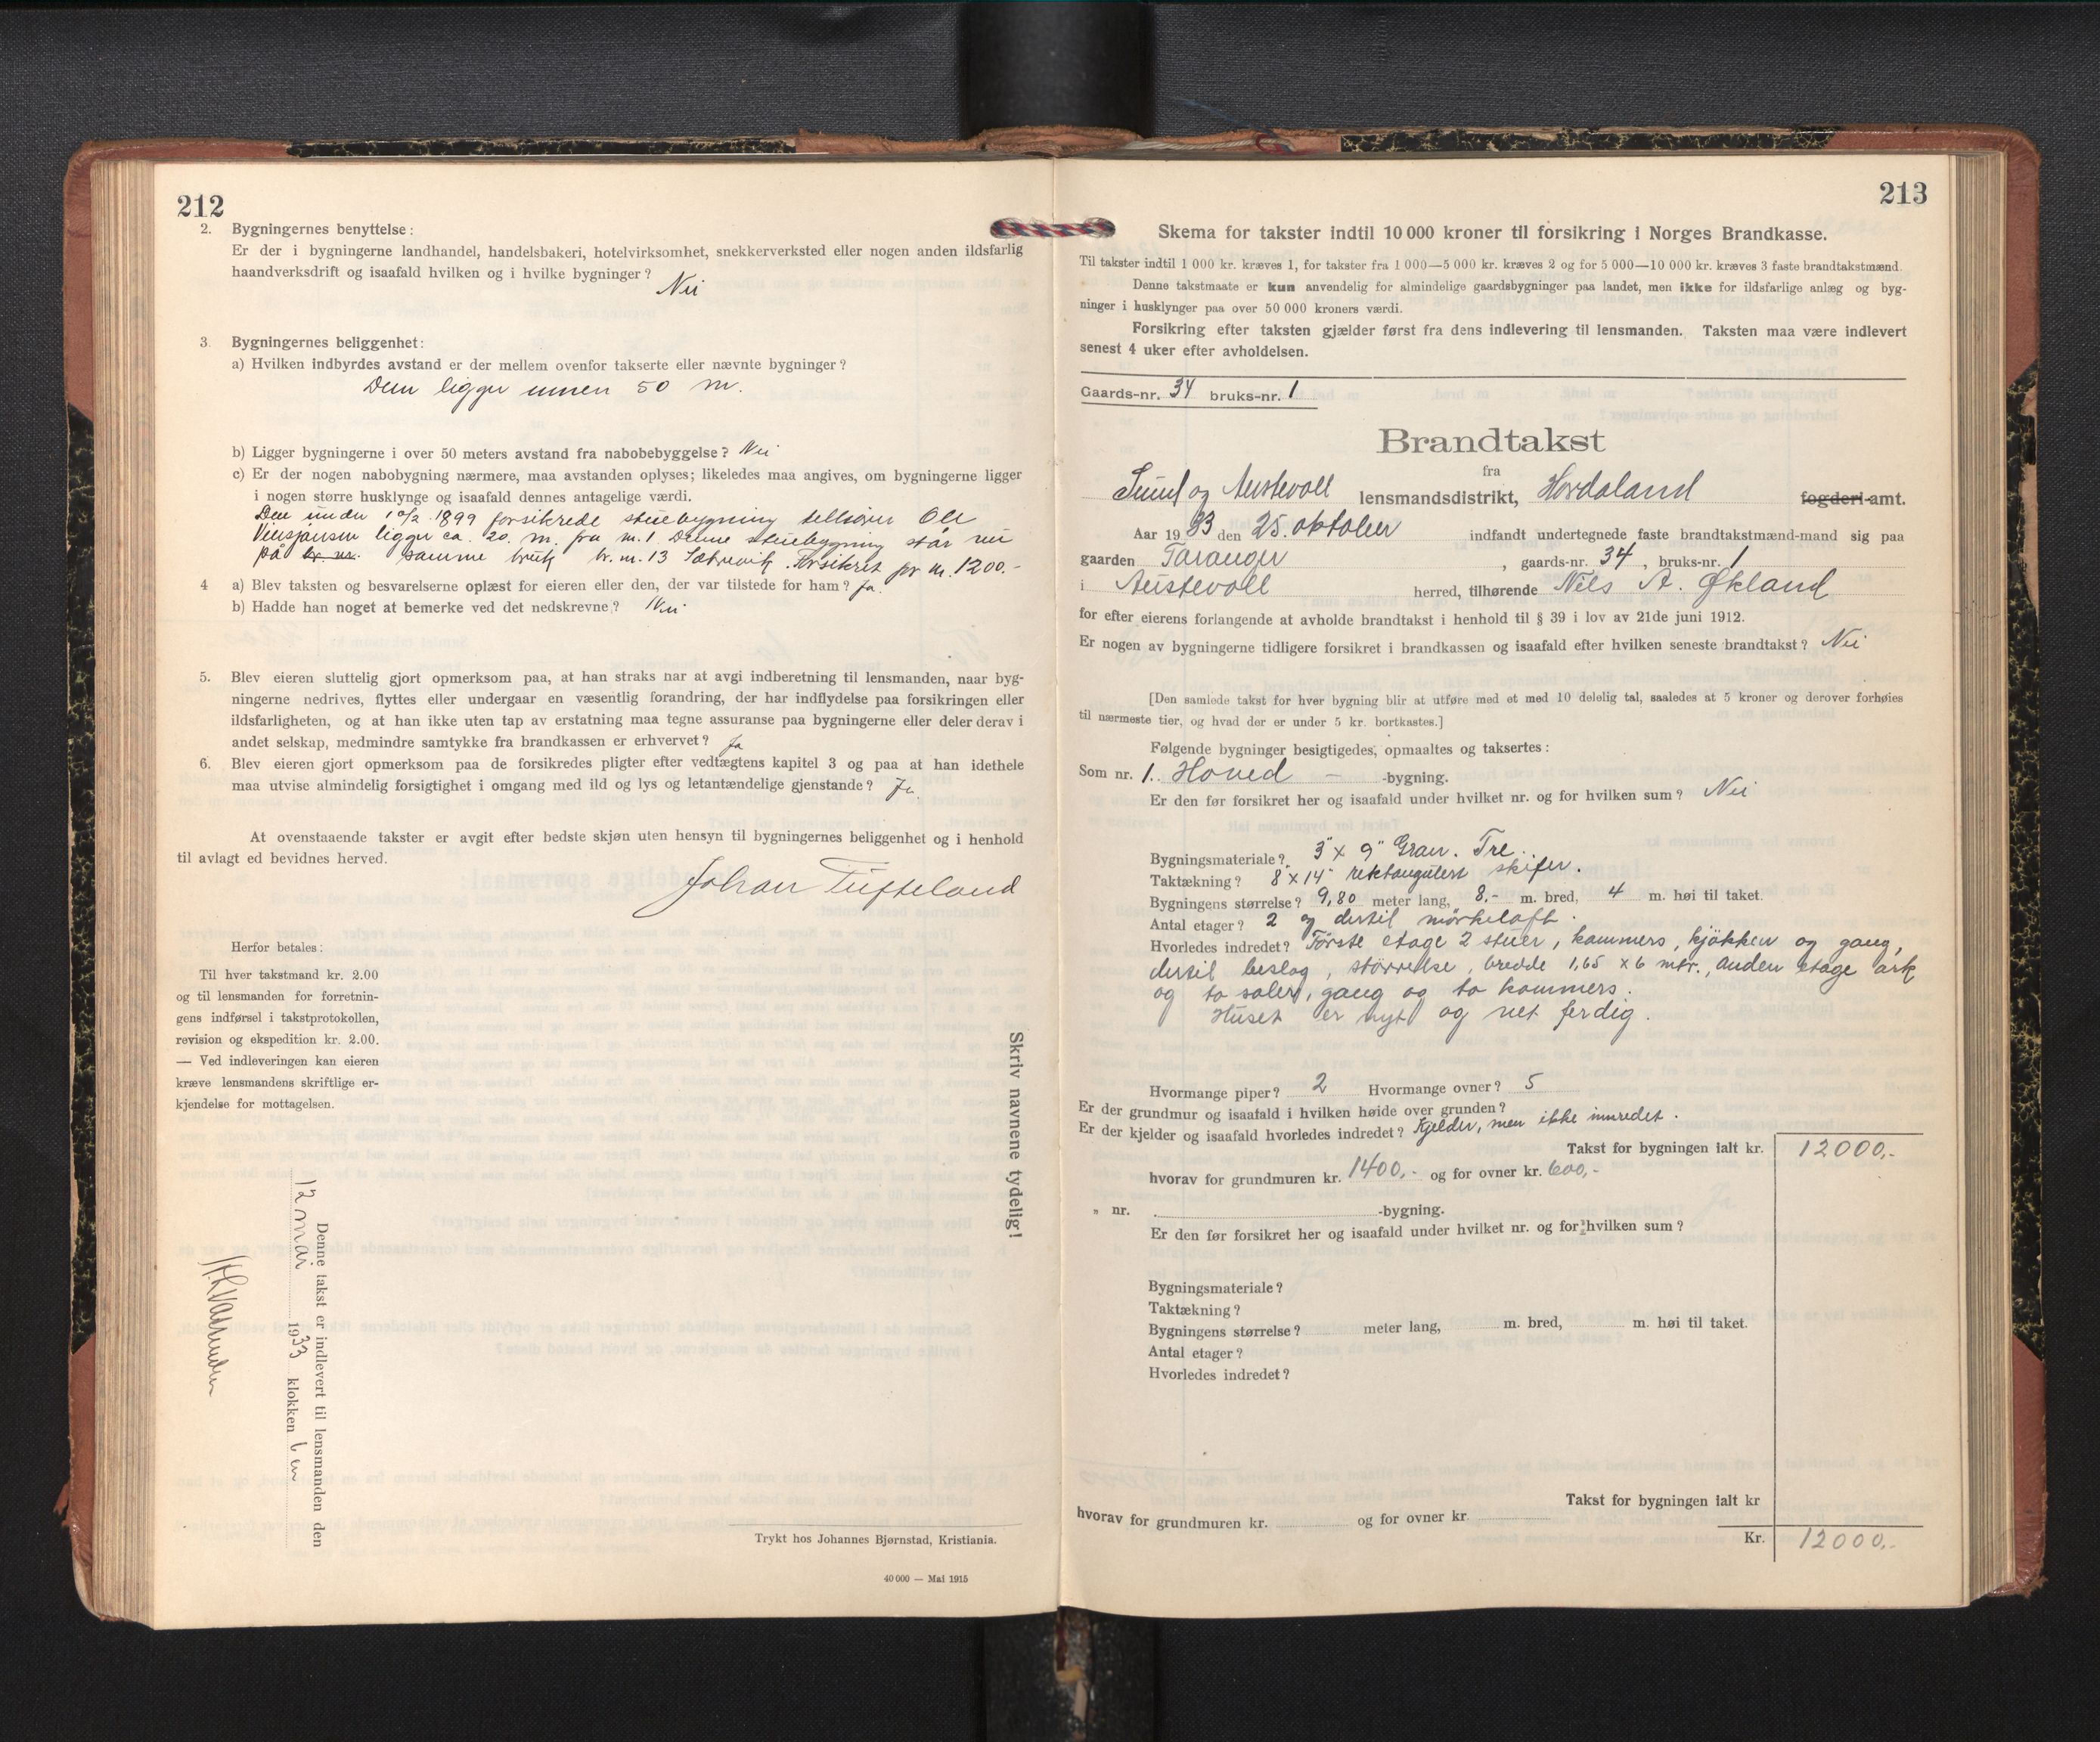 212
2. Bygningernes benyttelse:
Er der i bygningerne landhandel, handelsbakeri, hotelvirksomhet, snekkerverksted eller nogen anden ildsfarlig
haandverksdrift og isaafald hvilken og i hvilke bygninger?
Nei
3. Bygningernes beliggenhet:
a) Hvilken indbyrdes avstand er der mellem ovenfor takserte eller nævnte bygninger?
Dem ligger innen 50 m.
b) Ligger bygningerne i over 50 meters avstand fra nabobebyggelse? Nei
c) Er der nogen nabobygning nærmere, maa avstanden oplyses; likeledes maa angives, om bygningerne ligger
i nogen større husklynge og isaafald dennes antagelige værdi.
Den under 10/2 1899 forsikrede stuebygning tilhører Ole
ligger ca. 20. m. fra nr. 1 Denne stuebygning står nu
på br. nr. samme bruk br. nr. 13 Sætrevik. Forsikret pr kr. 1200.-
4 a) Blev taksten og besvarelserne oplæst for eieren eller den, der var tilstede for ham? Ja.
b) Hadde han noget at bemerke ved det nedskrevne? Nei
5. Blev eieren sluttelig gjort opmerksom paa, at han straks har at avgi indberetning til lensmanden, naar byg-
ningerne nedrives, flyttes eller undergaar en væsentlig forandring, der har indflydelse paa forsikringen eller
ildsfarligheten, og at han ikke uten tap av erstatning maa tegne assuranse paa bygningerne eller deler derav i
andet selskap, medmindre samtykke fra brandkassen er erhvervet? Ja
6. Blev eieren gjort opmerksom paa de forsikredes pligter efter vedtægtens kapitel 3 og paa at han idethele
maa utvise almindelig forsigtighet i omgang med ild og lys og letantændelige gjenstande? Ja
At ovenstaaende takster er avgit efter bedste skjøn uten hensyn til bygningernes beliggenhet og i henhold
til avlagt ed bevidnes herved.
Johan Tufteland
Herfor betales:
Til hver takstmand kr. 2.00
og til lensmanden for forretnin-
gens indførsel i takstprotokollen,
revision og ekspedition kr. 2.00.
— Ved indleveringen kan eieren
kræve lensmandens skriftlige er-
kjendelse for mottagelsen.
Skriv navnene tydelig!
Denne takst er indlevert til lensmanden den
12 mai 1933 klokken 6 em
Trykt hos Johannes Bjørnstad, Kristiania.
40 000 — Mai 1915
213
Skema for takster indtil 10 000 kroner til forsikring i Norges Brandkasse.
Til takster indtil 1 000 kr. kræves 1, for takster fra 1 000—5 000 kr. kræves 2 og for 5 000—10 000 kr. kræves 3 faste brandtakstmænd.
Denne takstmaate er kun anvendelig for almindelige gaardsbygninger paa landet, men ikke for ildsfarlige anlæg og byg-
ninger i husklynger paa over 50 000 kroners værdi.
Forsikring efter taksten gjælder først fra dens indlevering til lensmanden. Taksten maa være indlevert
senest 4 uker efter avholdelsen.
Gaards-nr. 34 bruks-nr. 1
Brandtakst
fra
Sund og Austevoll lensmandsdistrikt, Hordaland fogderi-amt.
Aar 1933 den 25. oktober indfandt undertegnede faste brandtakstmænd-mand sig paa
gaarden Taranger, gaards-nr. 34, bruks-nr. 1
i Austevoll herred, tilhørende Nils A. Økland
for efter eierens forlangende at avholde brandtakst i henhold til § 39 i lov av 21de juni 1912.
Er nogen av bygningerne tidligere forsikret i brandkassen og isaafald efter hvilken seneste brandtakst? Nei
[Den samlede takst for hver bygning blir at utføre med et med 10 delelig tal, saaledes at 5 kroner og derover forhøies
til nærmeste tier, og hvad der er under 5 kr. bortkastes.]
Følgende bygninger besigtigedes, opmaaltes og taksertes:
Som nr. 1. Hoved - -bygning.
Er den før forsikret her og isaafald under hvilket nr. og for hvilken sum? Nei
Bygningsmateriale? 3" x 9" Gran. Tre.
Taktækning? 8 x 14" rektangulert skifer.
Bygningens størrelse? 9,80 meter lang, 8,- m. bred, 4 m. høi til taket.
Antal etager? 2 og dertil mörkeloft.
Hvorledes indredet? Förste etage 2 stuer, kammers, kjökken og gang,
dertil beslag, störrelse, bredde 1,65 x 6 mtr., anden etage ark
og to saler, gang og to kammers.
Huset er nyt og net ferdig.
Hvormange piper? 2 Hvormange ovner? 5
Er der grundmur og isaafald i hvilken høide over grunden?
Er der kjelder og isaafald hvorledes indredet? Kjelder, men ikke innredet.
Takst for bygningen ialt kr. 12000,-
hvorav for grundmuren kr. 1400,- og for ovner kr. 600,-
„ nr. -bygning.
Er den før forsikret her og isaafald under hvilket nr. og for hvilken sum?
Bygningsmateriale?
Taktækning?
Bygningens størrelse? meter lang, m. bred, m. høi til taket.
Antal etager?
Hvorledes indredet?
Takst for bygningen ialt kr
hvorav for grundmuren kr. og for ovner kr.
Kr. 12000,-